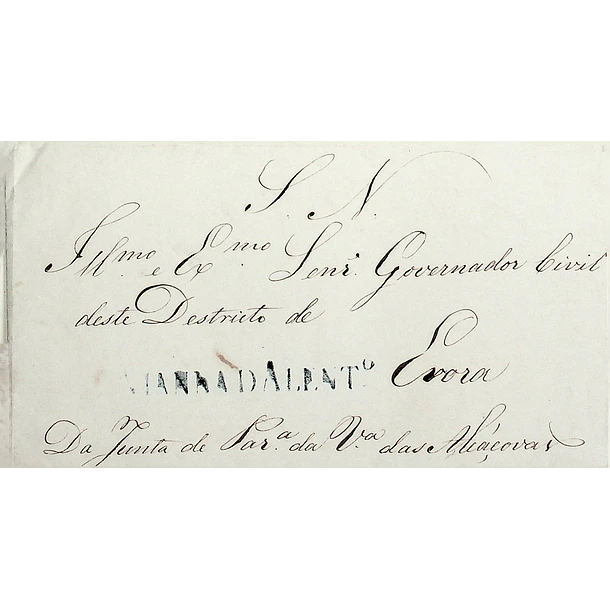 S. N.
Illmo. e Exmo. Senr. Governador Civil
deste Destricto de
VIANNA D ALENTº Evora
Da Junta de Par.ª da V.ª das Alcáçovas